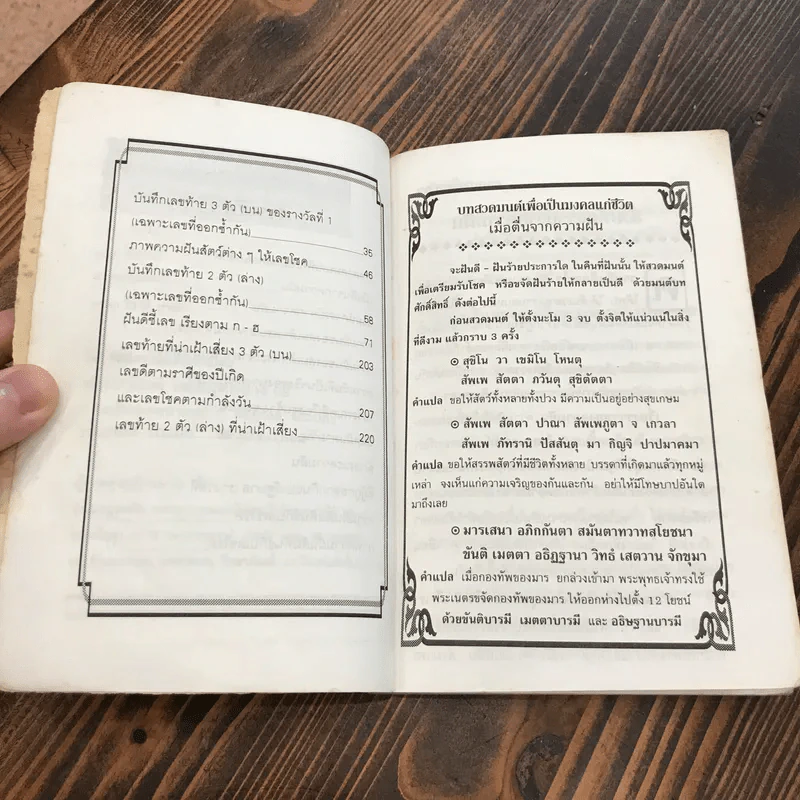 บันทึกเลขท้าย 3 ตัว (บน) ของรางวัลที่ 1
(เฉพาะเลขที่ออกซ้ำกัน) 35
ภาพความฝันสัตว์ต่าง ๆ ให้เลขโชค 46
บันทึกเลขท้าย 2 ตัว (ล่าง)
(เฉพาะเลขที่ออกซ้ำกัน) 58
ฝันดีชี้เลข เรียงตาม ก - ฮ 71
เลขท้ายที่น่าเฝ้าเสี่ยง 3 ตัว (บน) 203
เลขดีตามราศีของปีเกิด
และเลขโชคตามกำลังวัน 207
เลขท้าย 2 ตัว (ล่าง) ที่น่าเฝ้าเสี่ยง 220
บทสวดมนต์เพื่อเป็นมงคลแก่ชีวิต
เมื่อตื่นจากความฝัน
จะฝันดี - ฝันร้ายประการใด ในคืนที่ฝันนั้น ให้สวดมนต์
เพื่อเตรียมรับโชค หรือขจัดฝันร้ายให้กลายเป็นดี ด้วยมนต์บท
ศักดิ์สิทธิ์ ดังต่อไปนี้
ก่อนสวดมนต์ ให้ตั้งนะโม 3 จบ ตั้งจิตให้แน่วแน่ในสิ่ง
ที่ดีงาม แล้วกราบ 3 ครั้ง
๏ สุขิโน วา เขมิโน โหนตุ
สัพเพ สัตตา ภวันตุ สุขิตัตตา
คำแปล ขอให้สัตว์ทั้งหลายทั้งปวง มีความเป็นอยู่อย่างสุขเกษม
๏ สัพเพ สัตตา ปาณา สัพเพภูตา จ เกวลา
สัพเพ ภัทรานิ ปัสสันตุ มา กิญจิ ปาปมาคมา
คำแปล ขอให้สรรพสัตว์ที่มีชีวิตทั้งหลาย บรรดาที่เกิดมาแล้วทุกหมู่
เหล่า จงเห็นแก่ความเจริญของกันและกัน อย่าให้มีโทษบาปอันใด
มาถึงเลย
๏ มารเสนา อภิกกันตา สมันตาทวาทสโยชนา
ขันติ เมตตา อธิฏฐานา วิทธํ เสตวาน จักขุมา
คำแปล เมื่อกองทัพของมาร ยกล่วงเข้ามา พระพุทธเจ้าทรงใช้
พระเนตรขจัดกองทัพของมาร ให้ออกห่างไปตั้ง 12 โยชน์
ด้วยขันติบารมี เมตตาบารมี และ อธิษฐานบารมี